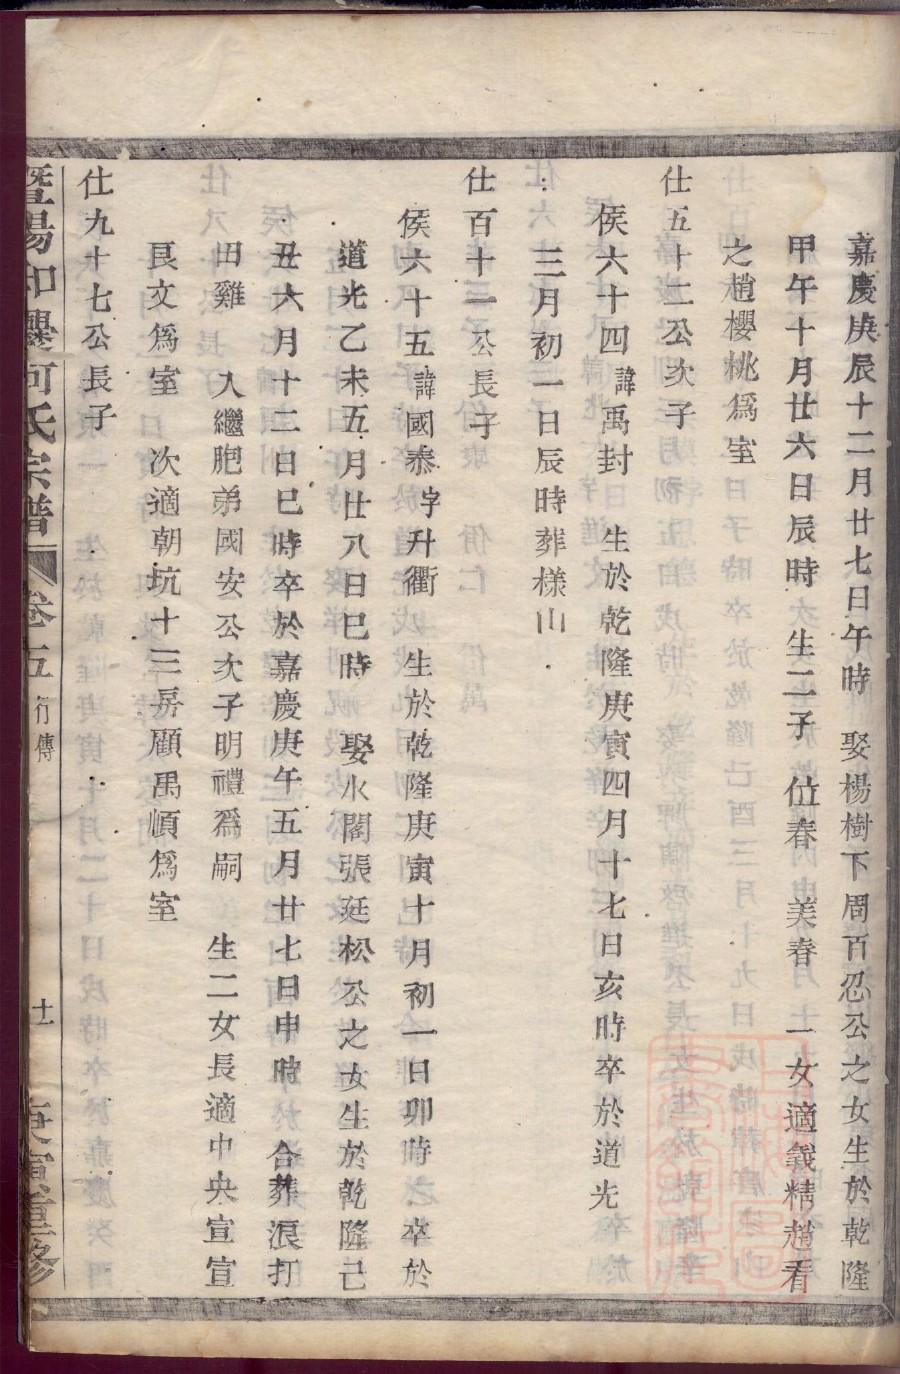 嘉慶庚辰十二月廿七日午時　娶楊樹下周百忍公之女生於乾隆
甲午十月廿六日辰時　生二子　位春　美春　一女適義精趙看
之趙櫻桃爲室
仕五十二公次子
侯六十四諱禹封　生於乾隆庚寅四月十七日亥時卒於道光
三月初一日辰時葬樣山
仕百十一公長子
侯六十五諱國泰字升衢　生於乾隆庚寅十月初一日卯時卒於
道光乙未五月廿八日巳時　娶水閣張廷松公之女生於乾隆己
丑六月十二日巳時卒於嘉慶庚午五月廿七日申時　合葬浪打
田雞　入繼胞弟國安公次子明禮爲嗣　生二女長適中央宣宣
艮文爲室　次適朝坑十三房顧禹順爲室
仕九十七公長子
暨陽和㶟何氏宗譜　卷五　行傳　十一　庚寅重修